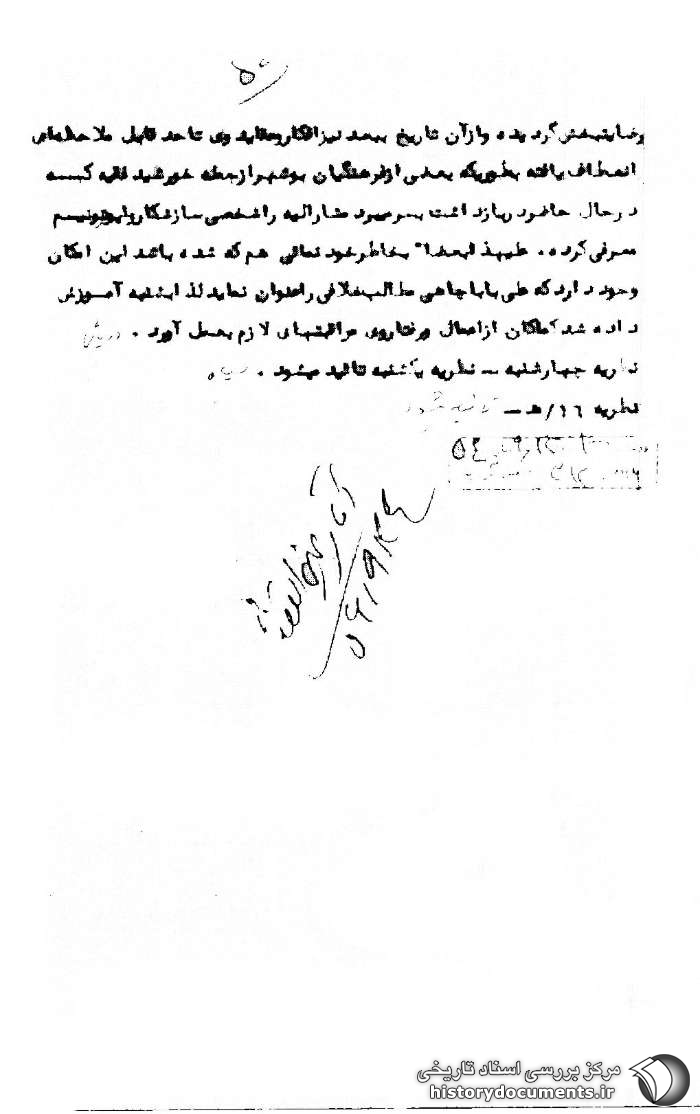 رضایتبخش گردیده و ازآن تاریخ ببعد نیز افکار وعقاید وی تا حد قابل ملاحظه‌ای
انعطاف یافته بطوریکه بعضی از فرهنگیان بوشهر ازجمله خورشید فقیه کسه
درحال حاضر در بازداشت بسر میبرد مشارالیه را شخصی سازشکار و اپورتونیسم
معرفی کرده. علیهذا بعضا" بخاطر خود نمائی هم که شده باشد این امکان
وجود دارد که علی باباچاهی مطالب خلافی را عنوان نماید لذا بشنبه آمــوزش
داده شد کماکان از اعمال و رفتار وی مراقبتهای لازم بعمل آورد.
نظریه چهارشنبه ــ نظریه یکشنبه تائید میشود.
نظریه ۱۶/ هـ ــ
مرکز بررسی اسناد تاریخی
historydocuments.ir